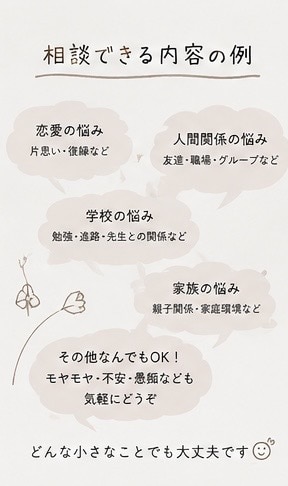 相談できる内容の例
恋愛の悩み
片思い・復縁など
人間関係の悩み
友達・職場・グループなど
学校の悩み
勉強・進路・先生との関係など
家族の悩み
親子関係・家庭環境など
その他なんでもOK！
モヤモヤ・不安・愚痴なども
気軽にどうぞ
どんな小さなことでも大丈夫です